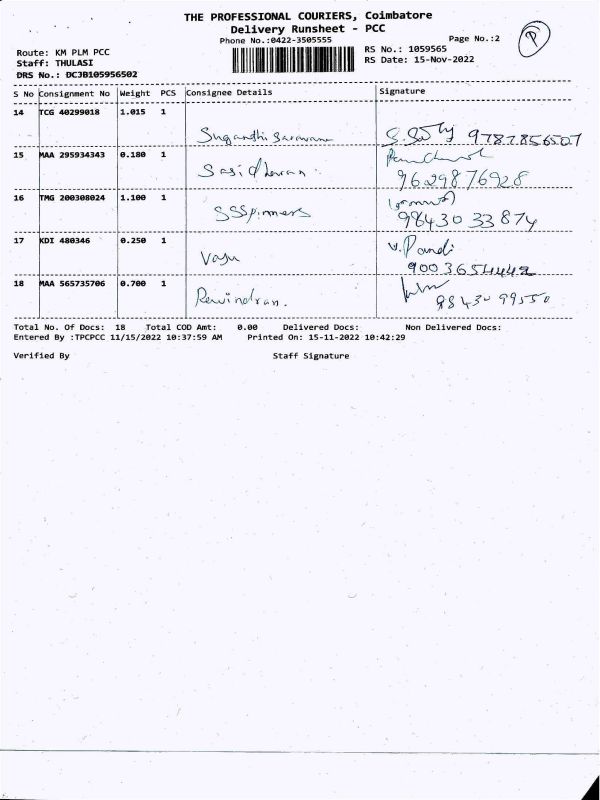 THE PROFESSIONAL COURIERS, Coimbatore
Delivery Runsheet - PCC
Phone No.:0422-3505555
Page No.:2
P
Route: KM PLM PCC
Staff: THULASI
DRS No.: DCJB105956502
RS No.: 1059565
RS Date: 15-Nov-2022
S No Consignment No Weight PCS Consignee Details Signature
14 TCG 40299018 1.015 1
Suganthi Saravana 9787856507
15 MAA 295934343 0.180 1
Sasidharan. 9629876928
16 TMG 200308024 1.100 1
SSSpinners 9843033874
17 KDI 480346 0.250 1 V. Pandi
Vasu
18 MAA 565735706 0.700 1
Rewindran. 9843099550
Total No. Of Docs: 18 Total COD Amt: 0.00 Delivered Docs: Non Delivered Docs:
Entered By :TPCPCC 11/15/2022 10:37:59 AM Printed On: 15-11-2022 10:42:29
Verified By Staff Signature